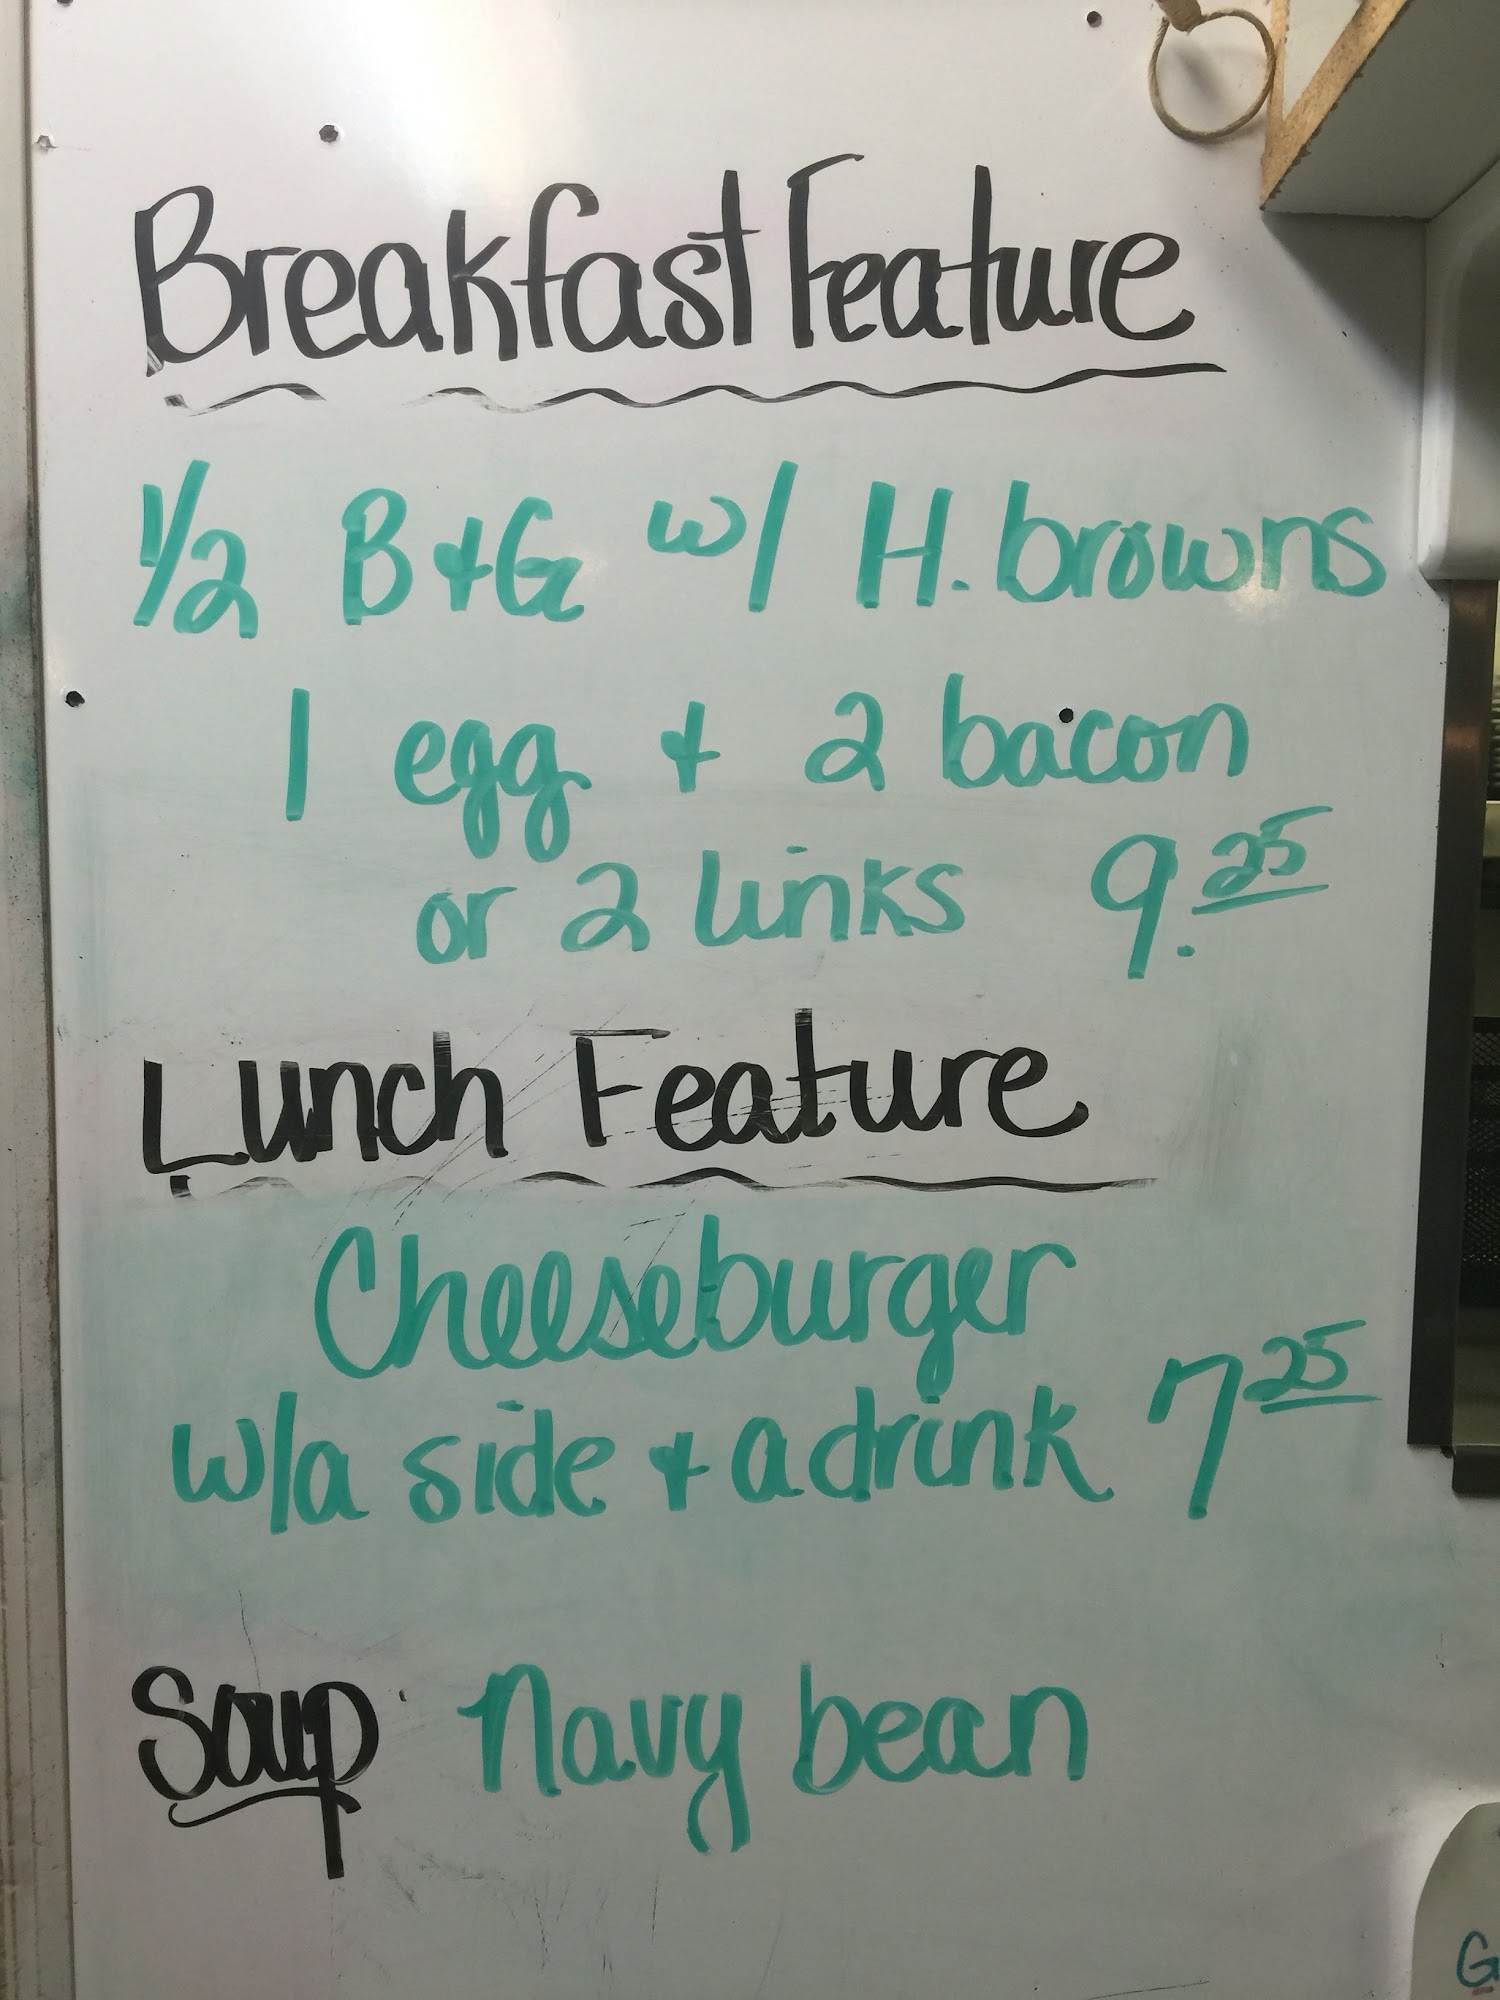 Breakfast Feature
1/2 B+G w/ H. browns
1 egg + 2 bacon
or 2 links 9.25
Lunch Feature
Cheeseburger
w/a side + a drink 7 25
Soup Navy bean
G